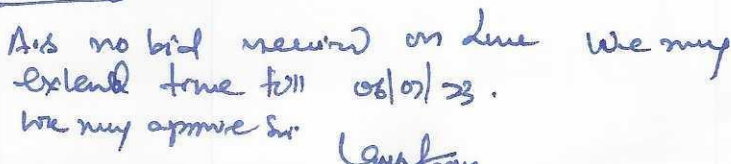 As no bid received on due we may
extend time till 06/07/23.
We may approve Sir